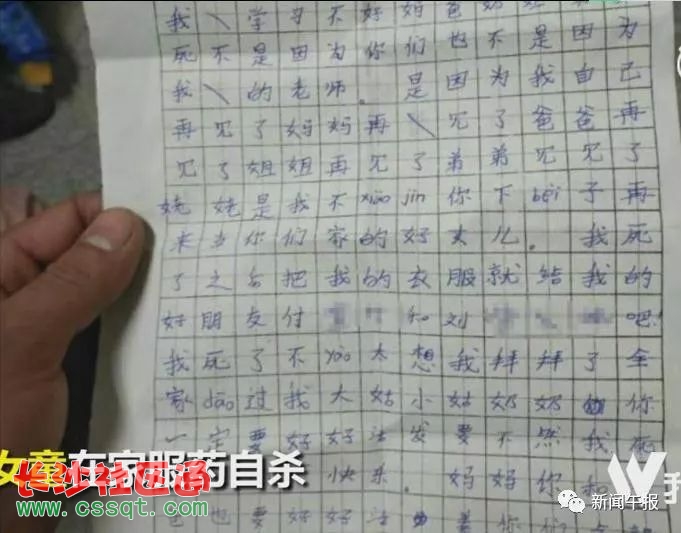 我\学习不好妈爸奶
死不是因为你们也不是因为
我\的老师。是因为我自己
再见了妈妈再\见了爸爸再
见了姐姐再见了弟弟见见了
姥姥是我不xiào jìn你下bèi子再
来当你们家的好女儿。我死
了之后把我的衣服就给我的
好朋友付 和刘 吧!
我死了不yào太想我拜拜了全
家dāo过我大姑小姑奶奶 你
一定要好好活 要不然我死
快乐。妈妈你和
爸也要好好活 你们
女童在家服药自杀
长沙社区通
www.cssqt.com
W我
新闻午报